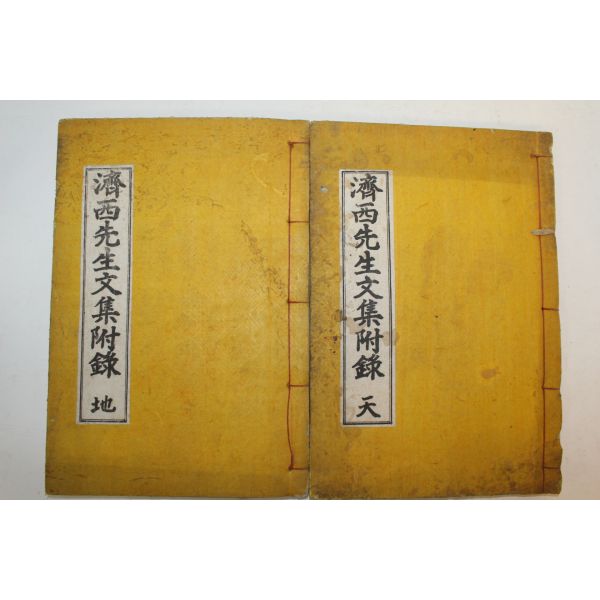 濟西先生文集附錄 天
濟西先生文集附錄 地